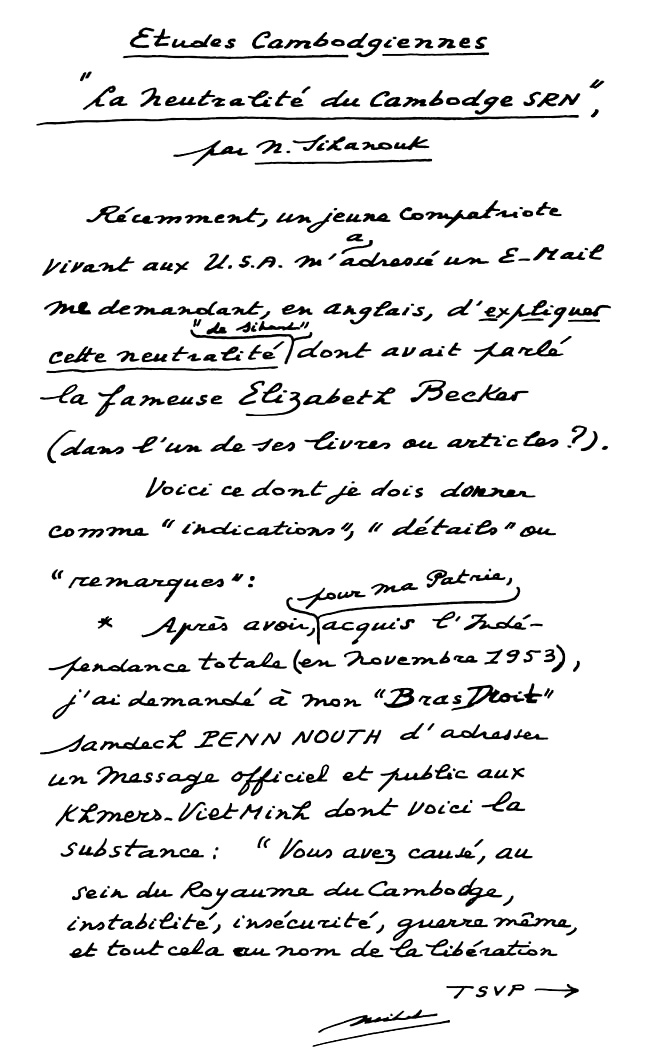 Etudes Cambodgiennes
"La neutralité du Cambodge SRN",
par N. Sihanouk
Récemment, un jeune compatriote
vivant aux U.S.A. m'a adressé un E-Mail
me demandant, en anglais, d'expliquer
cette neutralité "de Sihanouk" dont avait parlé
la fameuse Elizabeth Becker
(dans l'un de ses livres ou articles ?).
Voici ce dont je dois donner
comme "indications", "détails" ou
"remarques" :
* Après avoir, pour ma Patrie, acquis l'Indé-
pendance totale (en novembre 1953),
j'ai demandé à mon "Bras Droit"
Samdech PENN NOUTH d'adresser
un Message officiel et public aux
Khmers-Viet Minh dont voici la
substance : "Vous avez causé, au
sein du Royaume du Cambodge,
instabilité, insécurité, guerre même,
et tout cela au nom de la libération
TSVP →